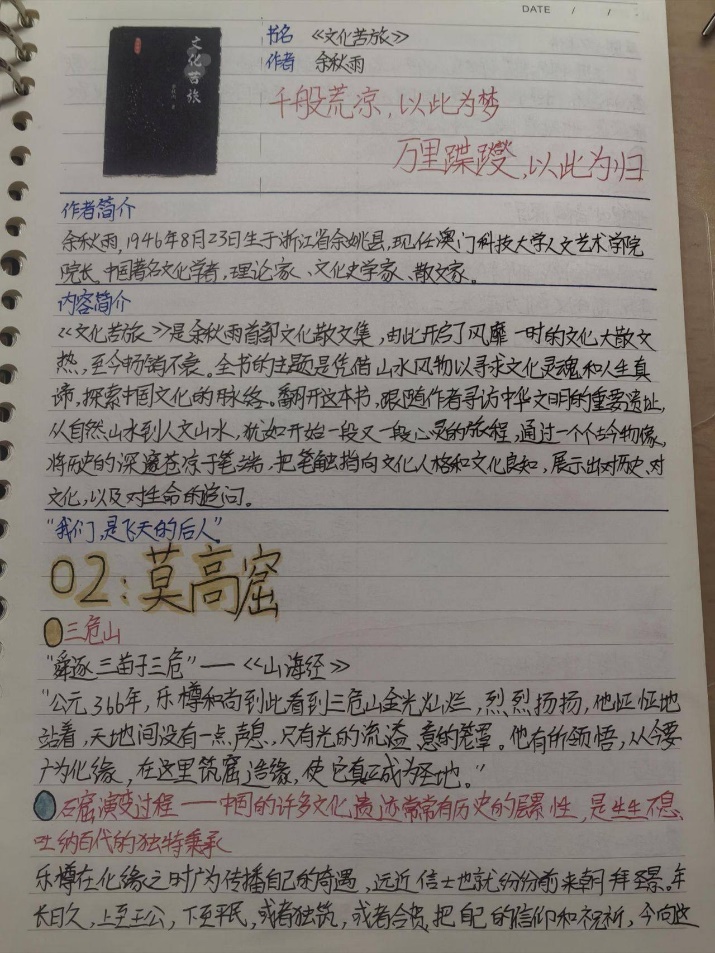 DATE / /
文化苦旅
书名 《文化苦旅》
作者 余秋雨
千般荒凉，以此为梦
万里蹀躞，以此为归
作者简介
余秋雨，1946年8月23日生于浙江省余姚县，现任澳门科技大学人文艺术学院
院长，中国著名文化学者，理论家、文化史学家、散文家。
内容简介
《文化苦旅》是余秋雨首部文化散文集，由此开启了风靡一时的文化大散文
热，至今畅销不衰。全书的主题是凭借山水风物以寻求文化灵魂和人生真
谛，探索中国文化的脉络。翻开这本书，跟随作者寻访中华文明的重要遗址，
从自然山水到人文山水，犹如开始一段又一段心灵的旅程，通过一个个古今物像，
将历史的深邃苍凉于笔端，把笔触指向文化人格和文化良知，展示出对历史、对
文化，以及对生命的追问。
“我们，是飞天的后人”
02：莫高窟
三危山
“舜逐三苗于三危”——《山海经》
“公元366年，乐樽和尚到此看到三危山金光灿烂，烈烈扬扬，他怔怔地
站着，天地间没有一点声息，只有光的流溢，意的笼罩。他有所领悟，从今要
广为化缘，在这里筑窟造缘，使它真正成为圣地。”
石窟演变过程——中国的许多文化遗迹常常有历史的层累性，是生生不息、
吐纳百代的独特秉承
乐樽在化缘之时广为传播自己的奇遇，远近信士也就纷纷前来朝拜圣景。年
长日久，上至王公，下至平民，或者独筑，或者合资，把自己的信仰和祝祈，全向这